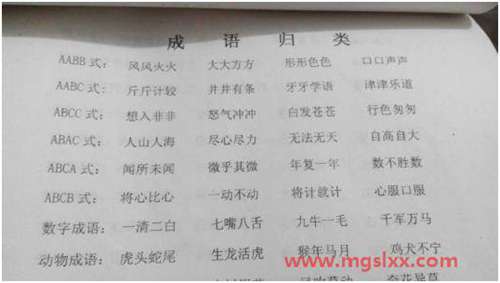 成 语 归 类
AABB 式： 风风火火 大大方方 形形色色 口口声声
AABC 式： 斤斤计较 井井有条 牙牙学语 津津乐道
ABCC 式： 想入非非 怒气冲冲 白发苍苍 行色匆匆
ABAC 式： 人山人海 尽心尽力 无法无天 自高自大
ABCA 式： 闻所未闻 微乎其微 年复一年 数不胜数
ABCB 式： 将心比心 一动不动 将计就计 心服口服
数字成语： 一清二白 七嘴八舌 九牛一毛 千军万马
动物成语： 虎头蛇尾 生龙活虎 猴年马月 鸡犬不宁
www.mgslxx.com
奇花异草